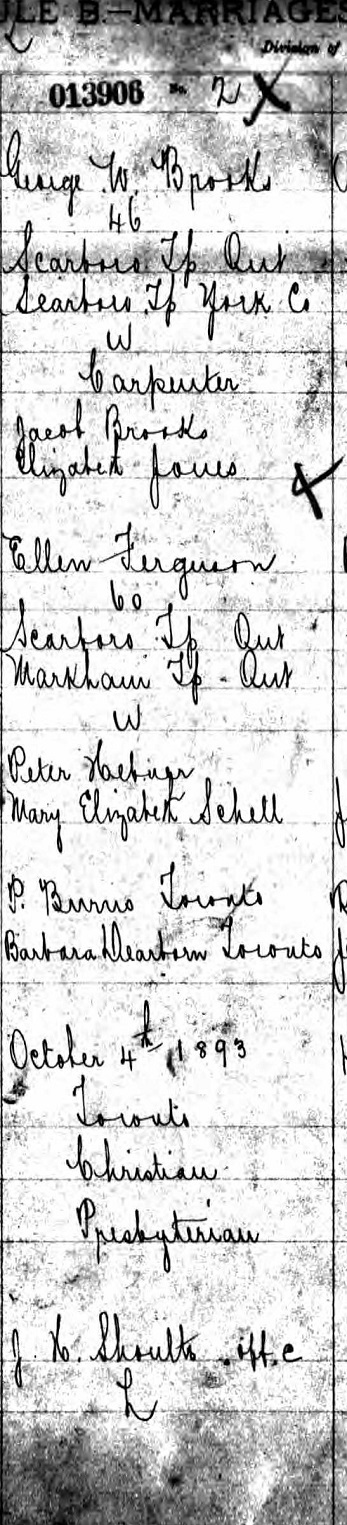 ULE B.—MARRIAGES
Division of
013906 No. 2 X
George W. Brooks
46
Scarboro Tp Ont
Scarboro Tp York Co
W
Carpenter
Jacob Brooks
Elizabeth Jones
X
Ellen Ferguson
60
Scarboro Tp Ont
Markham Tp - Ont
W
Peter
Mary Elizabeth Schell
P. Burns Toronto
Barbara Dearborn Toronto
October 4th 1893
Toronto
Christian
Presbyterian
J. H. Shoults off. c
L